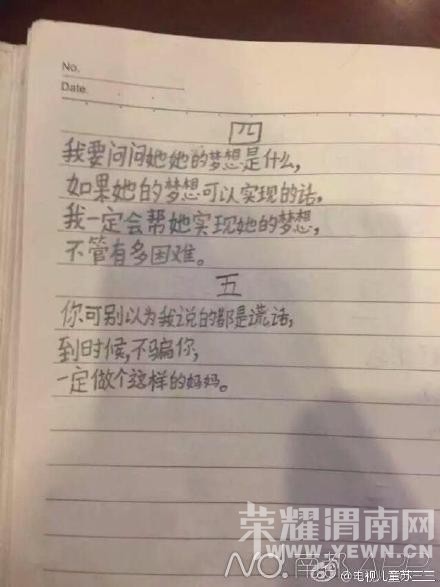 No.
Date.
四
我要问问她她的梦想是什么,
如果她的梦想可以实现的话,
我一定会帮她实现她的梦想,
不管有多困难。
五
你可别以为我说的都是谎话,
到时候,不骗你,
一定做个这样的妈妈。
荣耀渭南网
WWW.YEWN.CN
@电视儿童苏三三